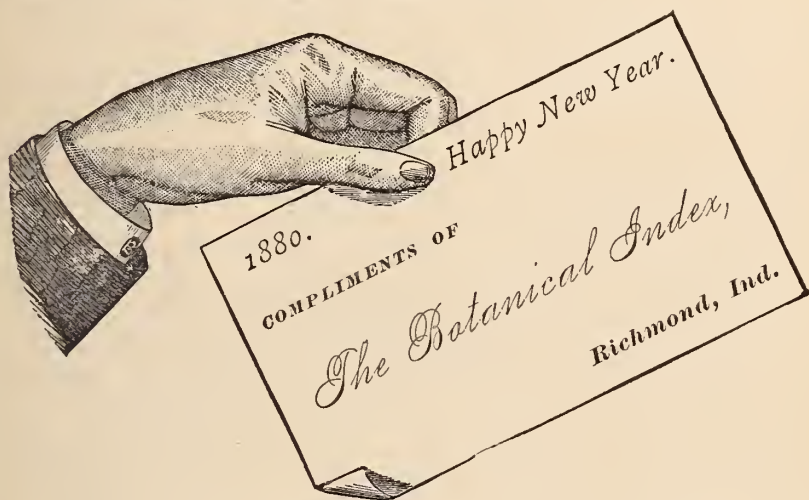 1880.
Happy New Year.
COMPLIMENTS OF
The Botanical Index,
Richmond, Ind.